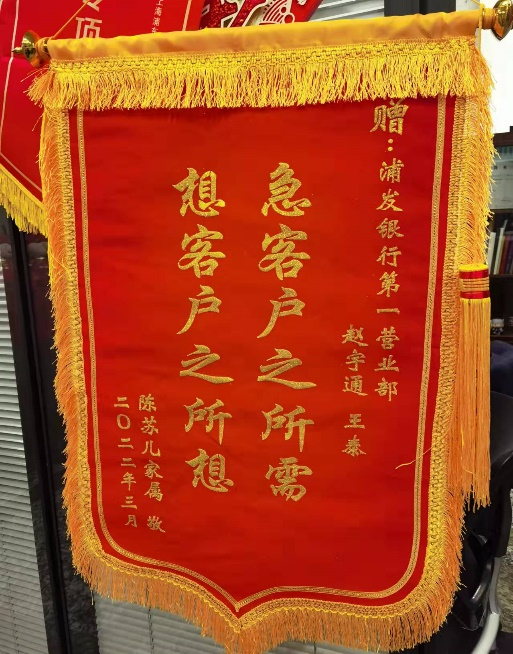 赠：浦发银行第一营业部
赵宇通 王泰
急客户之所需
想客户之所想
陈苏儿家属 敬
二〇二二年三月
上海浦东
项